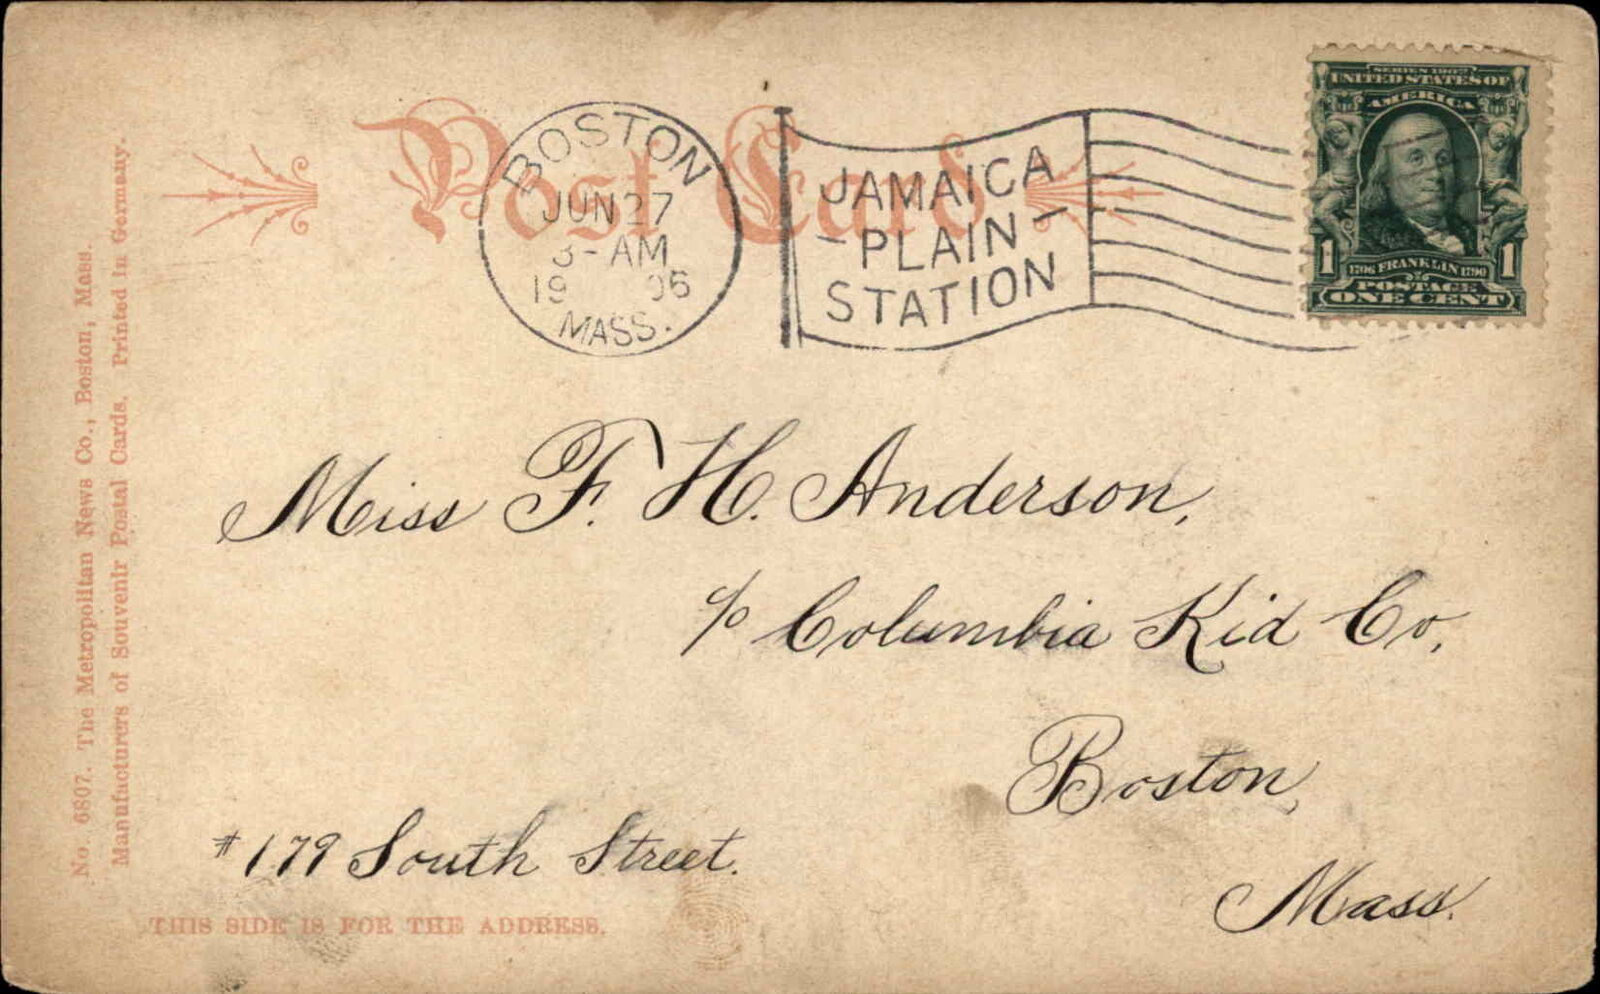 Post Card
BOSTON
JUN 27
- AM
19 06
MASS.
JAMAICA
- PLAIN -
STATION
SERIES 1902
UNITED STATES OF
AMERICA
1 1
1706 FRANKLIN 1790
POSTAGE
ONE CENT
Miss F. H. Anderson,
c/o Columbia Kid Co,
Boston,
Mass.
#179 South Street.
THIS SIDE IS FOR THE ADDRESS.
No. 6807. The Metropolitan News Co., Boston, Mass.
Manufacturers of Souvenir Postal Cards. Printed in Germany.